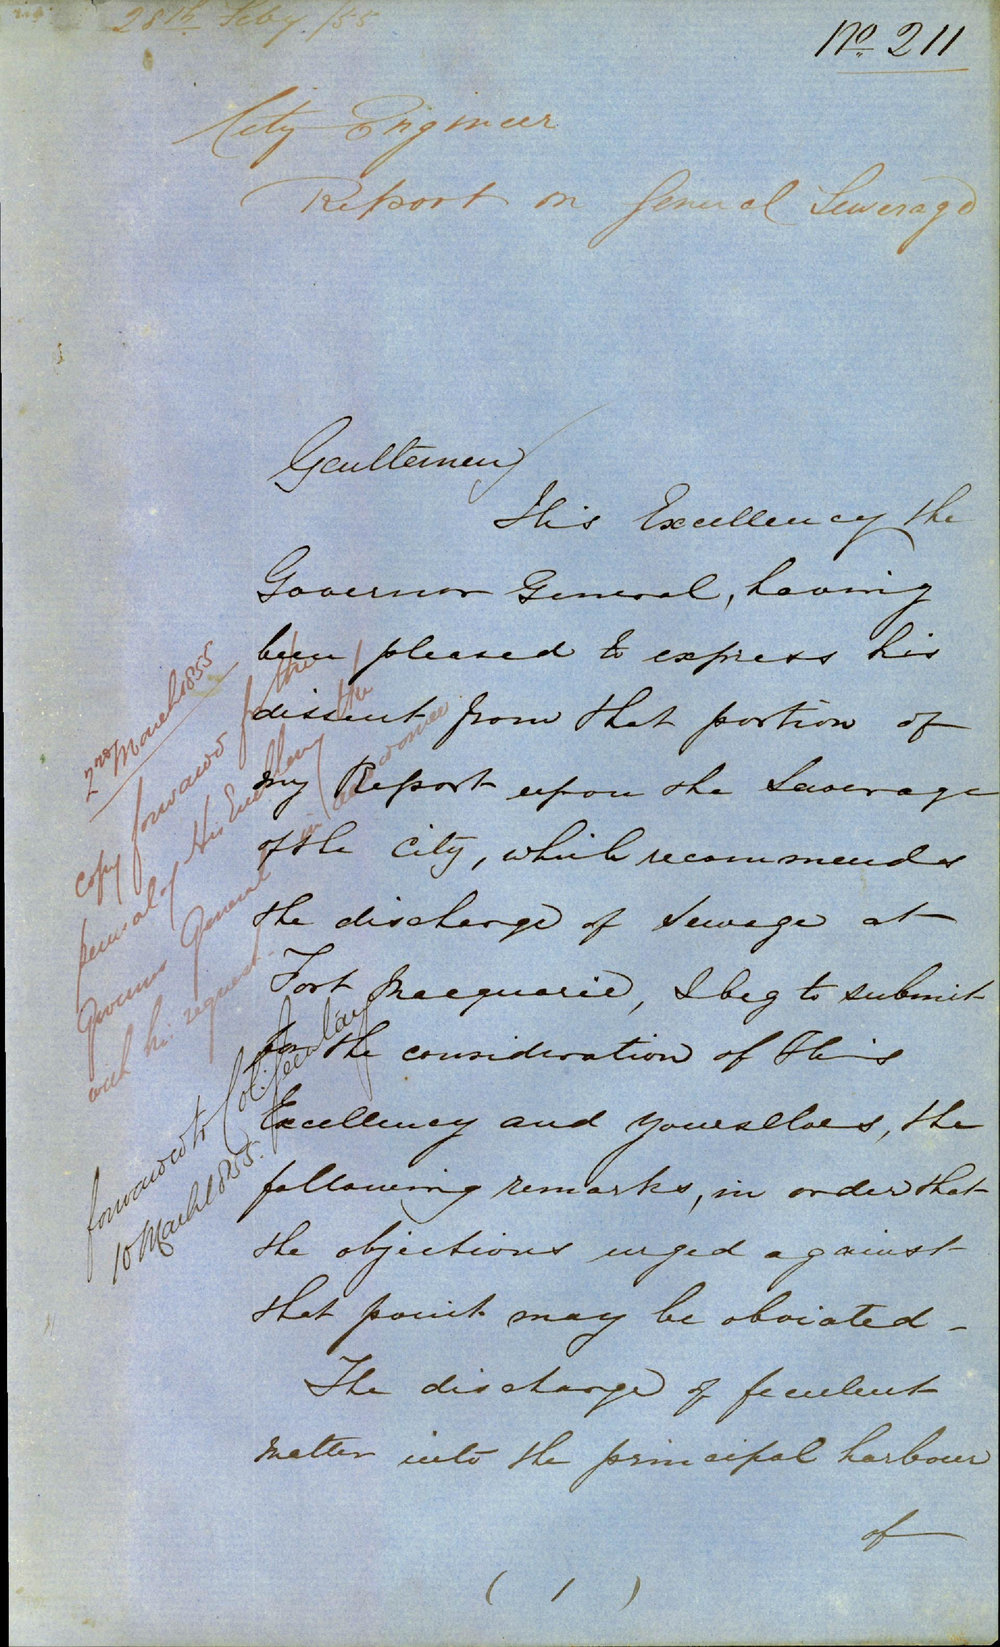 28th Feby /55
No 211
City Engineer
Report on General Sewerage
Gentlemen
His Excellency the
Governor General, having
been pleased to express his
dissent from that portion of
my Report upon the Sewerage
of the City, which recommends
the discharge of sewage at
Fort Macquarie, I beg to submit
for the consideration of His
Excellency and yourselves, the
following remarks, in order that
the objections urged against
that point may be obviated –
The discharge of feculent
matter into the principal harbour
of
( 1 )
2nd March 1855
copy forwarded for the
perusal of His Excellency the
Governor General in accordance
with his request.
forwarded to Col: Secretary
10 March 1855.